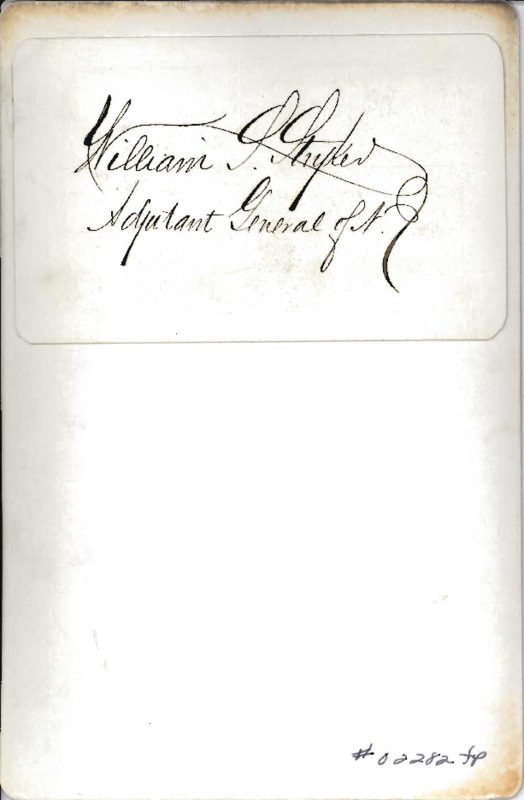 William S. Stryker
Adjutant General of N.J.
# 02282